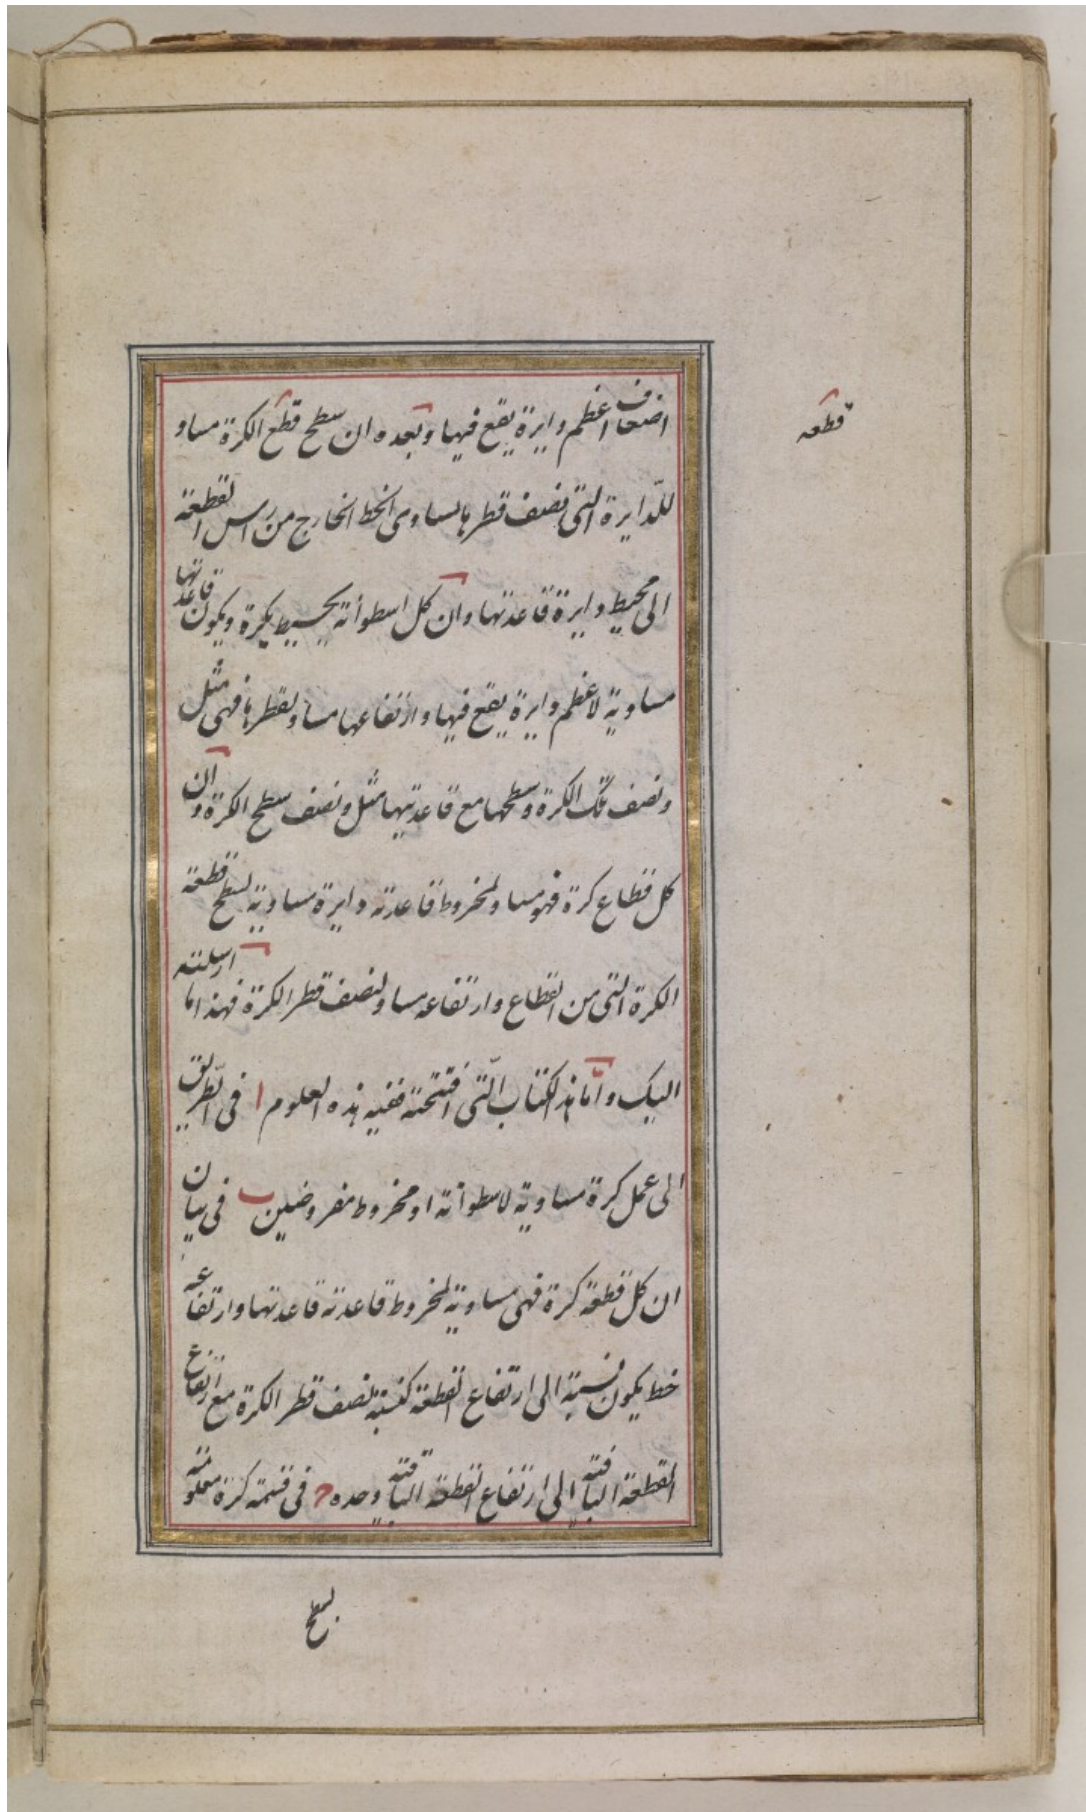 اضعاف اعظم دايرة يقع فيها وبعده ان سطح قطع الكرة مساو
قطعه
للدّايرة التى نصف قطرها يساوى الخط الخارج من راس القطعة
الى محيط دايرة قاعدتها وان كل اسطوانة يحيط بكرة ويكون قاعدتها
مساوية لاعظم دايرة يقع فيها وارتفاعها مساو لقطرها فهى مثل
ونصف تلك الكرة وسطحها مع قاعدتيها مثل ونصف سطح الكرة وان
كل قطاع كرة فهو مساو لمخروط قاعدته دايرة مساوية لسطح قطعة
الكرة التى من القطاع وارتفاعه مساو لنصف قطر الكرة فهذا ما ارسلته
اليك وامّا هذ الكتاب الّتى افتتحته ففيه هذه العلوم ا فى الطّريق
الى عمل كرة مساوية لاسطوانة او مخروط مفروضين ب فى بيان
ان كل قطعة كرة فهى مساوية لمخروط قاعدته قاعدتها وارتفاعه
خط يكون نسبة الى ارتفاع القطعة كنسبة نصف قطر الكرة مع ارتفاع
القطعة الباقية الى ارتفاع القطعة الباقية وحده ج فى قسمة كرة معلومة
بسطح